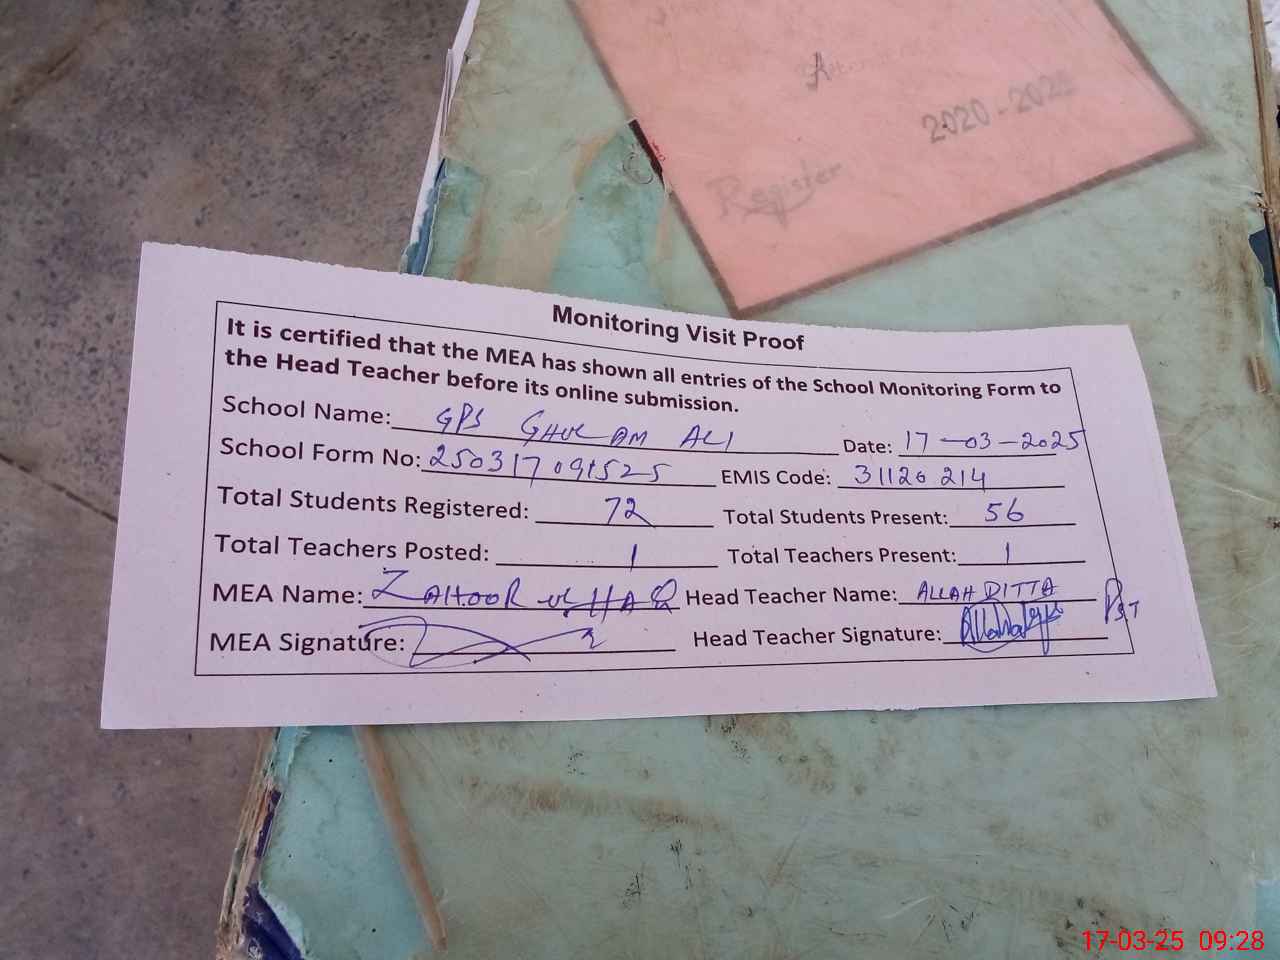 Attendance
2020-2021
Register
Monitoring Visit Proof
It is certified that the MEA has shown all entries of the School Monitoring Form to
the Head Teacher before its online submission.
School Name: GPS GHULAM ALI Date: 17-03-2025
School Form No: 250317091525 EMIS Code: 31120214
Total Students Registered: 72 Total Students Present: 56
Total Teachers Posted: 1 Total Teachers Present: 1
MEA Name: ZAHOOR UL HAQ Head Teacher Name: ALLAH DITTA
MEA Signature: Head Teacher Signature: PST
17-03-25 09:28